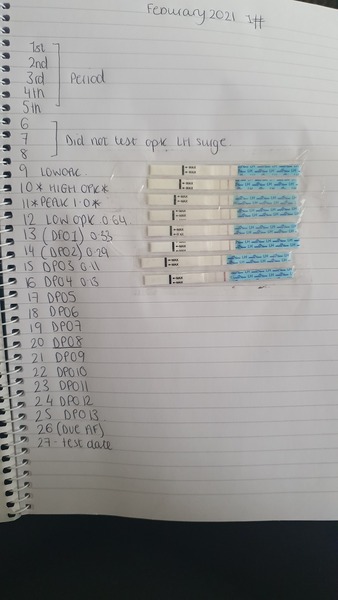 February 2021
1st
2nd
3rd Period
4th
5th
6
7 Did not test opk LH surge
8
9 LOW OPK
10 * HIGH OPK *
11 * PEAK 1.0 *
12 LOW opk 0.64
13 (DPO1) 0.53
14 (DPO2) 0.29
15 DPO3 0.11
16 DPO4 0.13
17 DPO5
18 DPO6
19 DPO7
20 DPO8
21 DPO9
22 DPO10
23 DPO11
24 DPO12
25 DPO13
26 (DUE AF)
27 - test date
MAX
MAX
MAX
MAX
MAX
MAX
MAX
MAX